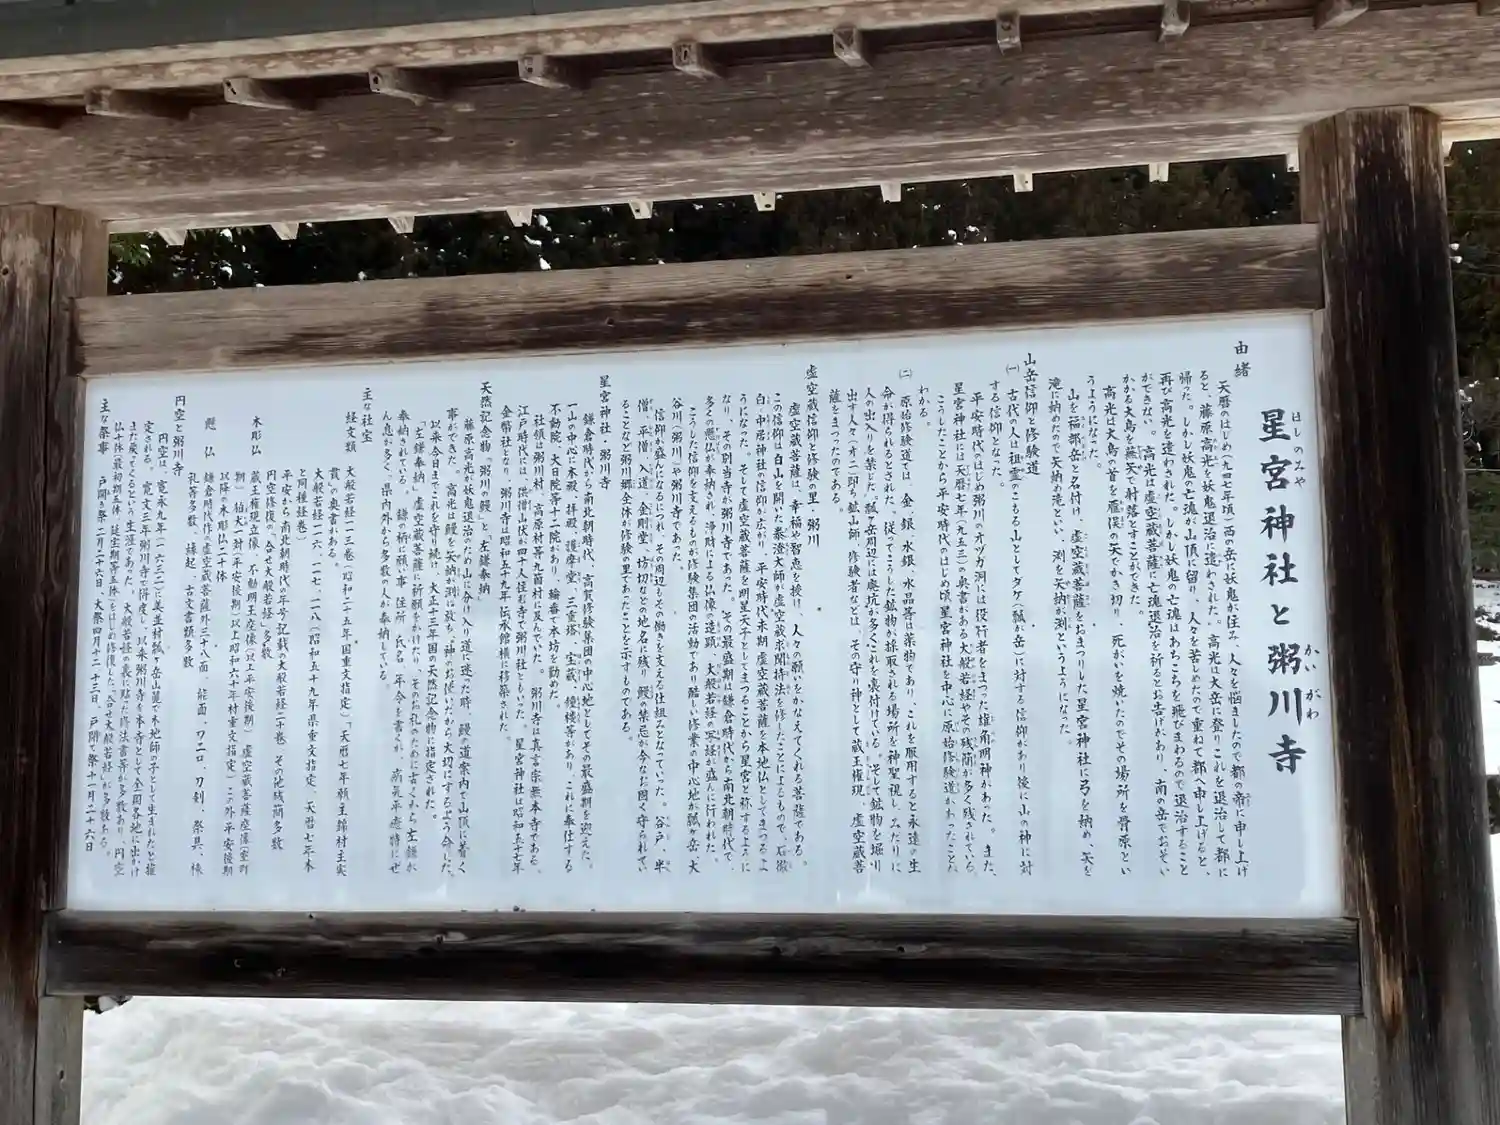 星宮神社と粥川寺
ほしのみや
かいがわ
由緒
天暦のはじめ(九四七年頃)西の岳に妖鬼が住み、人々を悩ましたので都の帝に申し上げ
ると、藤原高光を妖鬼退治に遣わされた。高光は大岳に登りこれを退治して都に
帰った。しかし妖鬼の亡魂が山頂に留り、人々を苦しめたので重ねて都へ申し上げると、
再び高光を遣わされた。しかし妖鬼の亡魂はあちこちを飛びまわるので退治すること
ができない。高光は虚空蔵菩薩に亡魂退治を祈るとお告げがあり、南の岳でおそい
かかる大鳥を蕪矢で射落とすことができた。
高光は大鳥の首を雁俣の矢でかき切り、死がいを焼いたのでその場所を骨原とい
うようになった。
山を福部岳と名付け、虚空蔵菩薩をおまつりした星宮神社に弓を納め、矢を
滝に納めたので矢納め滝といい、渕を矢納が渕というようになった。
山岳信仰と修験道
㈠ 古代の人は祖霊のこもる山としてタケ(瓢が岳)に対する信仰があり後に山の神に対
する信仰となった。
平安時代のはじめ粥川のオツガ洞には役行者をまつった雄角明神があった。また、
星宮神社には天暦七年(九五三)の奥書がある大般若経やその残簡が多く残されている。
こうしたことから平安時代のはじめ頃星宮神社を中心に原始修験道があったことが
わかる。
㈡ 原始修験道では、金、銀、水銀、水晶等は薬物であり、これを服用すると永遠の生
命が得られるとされた。従ってこうした鉱物が採取される場所を神聖視し、みだりに
人の出入りを禁じた。瓢ヶ岳周辺には廃坑が多くこれを裏付けている。そして鉱物を堀り
出す人々(オニ)即ち鉱山師、修験者などは、その守り神として蔵王権現、虚空蔵菩
薩をまつったのである。
虚空蔵信仰と修験の里・粥川
虚空蔵菩薩は、幸福や智恵を授け、人々の願いをかなえてくれる菩薩である。
この信仰は白山を開いた泰澄大師が虚空蔵求聞持法を修したことによるもので、石徹
白、中居神社の信仰が広がり、平安時代末期虚空蔵菩薩を本地仏としてまつるよ
うになった。そして虚空蔵菩薩を明星天子としてまつることから星宮と称するように
なり、その別当寺が粥川寺であった。その最盛期は鎌倉時代から南北朝時代で、
多くの懸仏が奉納され、浄財による仏像の造顕、大般若経の写経が盛んに行われた。
こうした信仰を支えるものが修験集団の活動であり厳しい修業の中心地が瓢ヶ岳、大
谷川(粥川)や粥川寺であった。
信仰が盛んになるにつれ、その周辺もその働きを支える仕組みとなっていった。谷戸、半
僧、平僧、入道、金剛堂、坊切などの地名に残り、鰻の禁忌が今なお固く守られてい
ることなど粥川郷全体が修験の里であったことを示すものである。
星宮神社・粥川寺
鎌倉時代から南北朝時代、高賀修験集団の中心地としてその最盛期を迎えた。
一山の中心に本殿、拝殿、護摩堂、三重塔、宝蔵、鐘楼等があり、これに奉仕する
不動院、大日院等十二院があり、輪番で本坊を勤めた。
社領は粥川村、高原村等九箇村に及んでいた。粥川寺は真言宗無本寺である。
江戸時代には、供僧山伏四十人怪彩寺で粥川社ともいった。星宮神社は昭和五七年
金幣社となり、粥川寺は昭和五十九年伝承館横に移築された。
天然記念物「粥川の鰻」と左鎌奉納
藤原高光が妖鬼退治のため山に分け入り道に迷った時、鰻の道案内で山頂に着く
事ができた。高光は鰻を矢納が渕に放ち、神のお使いだから大切にするよう命じた。
以来今日までこれを守り続け、大正十三年国の天然記念物に指定された。
「左鎌奉納」虚空蔵菩薩に祈願をかけたり、そのお礼のために古くから左鎌が
奉納されている。鎌の柄に願い事、住所、氏名、年令を書くが、病気平癒特にぜ
ん息が多く、県内外から多数の人が奉納している。
主な社宝
経文類 大般若経一一三巻(昭和二十五年 国重文指定)「天暦七年願主錦村主実
貫」の奥書がある。
大般若経一一六、一一七、一一八(昭和五十九年県重文指定、天暦七年本
と同種経巻)
平安から南北朝時代の年号記載の大般若経二十巻、その他残簡多数
円空修復の「合せ大般若経」多数
木彫仏 蔵王権現立像、不動明王座像(以上平安後期)虚空蔵菩薩座像(室町
期) 狛犬一対(平安後期)(以上昭和六十年村重文指定)この外平安後期
以降の木彫仏二十体
懸仏 鎌倉時代作の虚空蔵菩薩外三十八面、能面、ワニ口、刀剣、祭具、棟
札等多数、縁起、古文書類多数
円空と粥川寺
円空は、寛永九年(一六三二)に美並村瓢ヶ岳山麓の木地師の子として生まれたと推
定される。寛文三年粥川寺で得度し、以来粥川寺を本寺として全国各地に出かけ
また戻ってくるという生涯であった。大般若経の裏に貼った修法書等が多数あり、円空
仏十体(最初期五体、延宝期等五体)をはじめ修復した「合せ大般若経」が多数ある。
主な祭事 戸開き祭二月二十六日、大祭四月二十三日、戸閉て祭十一月二十六日